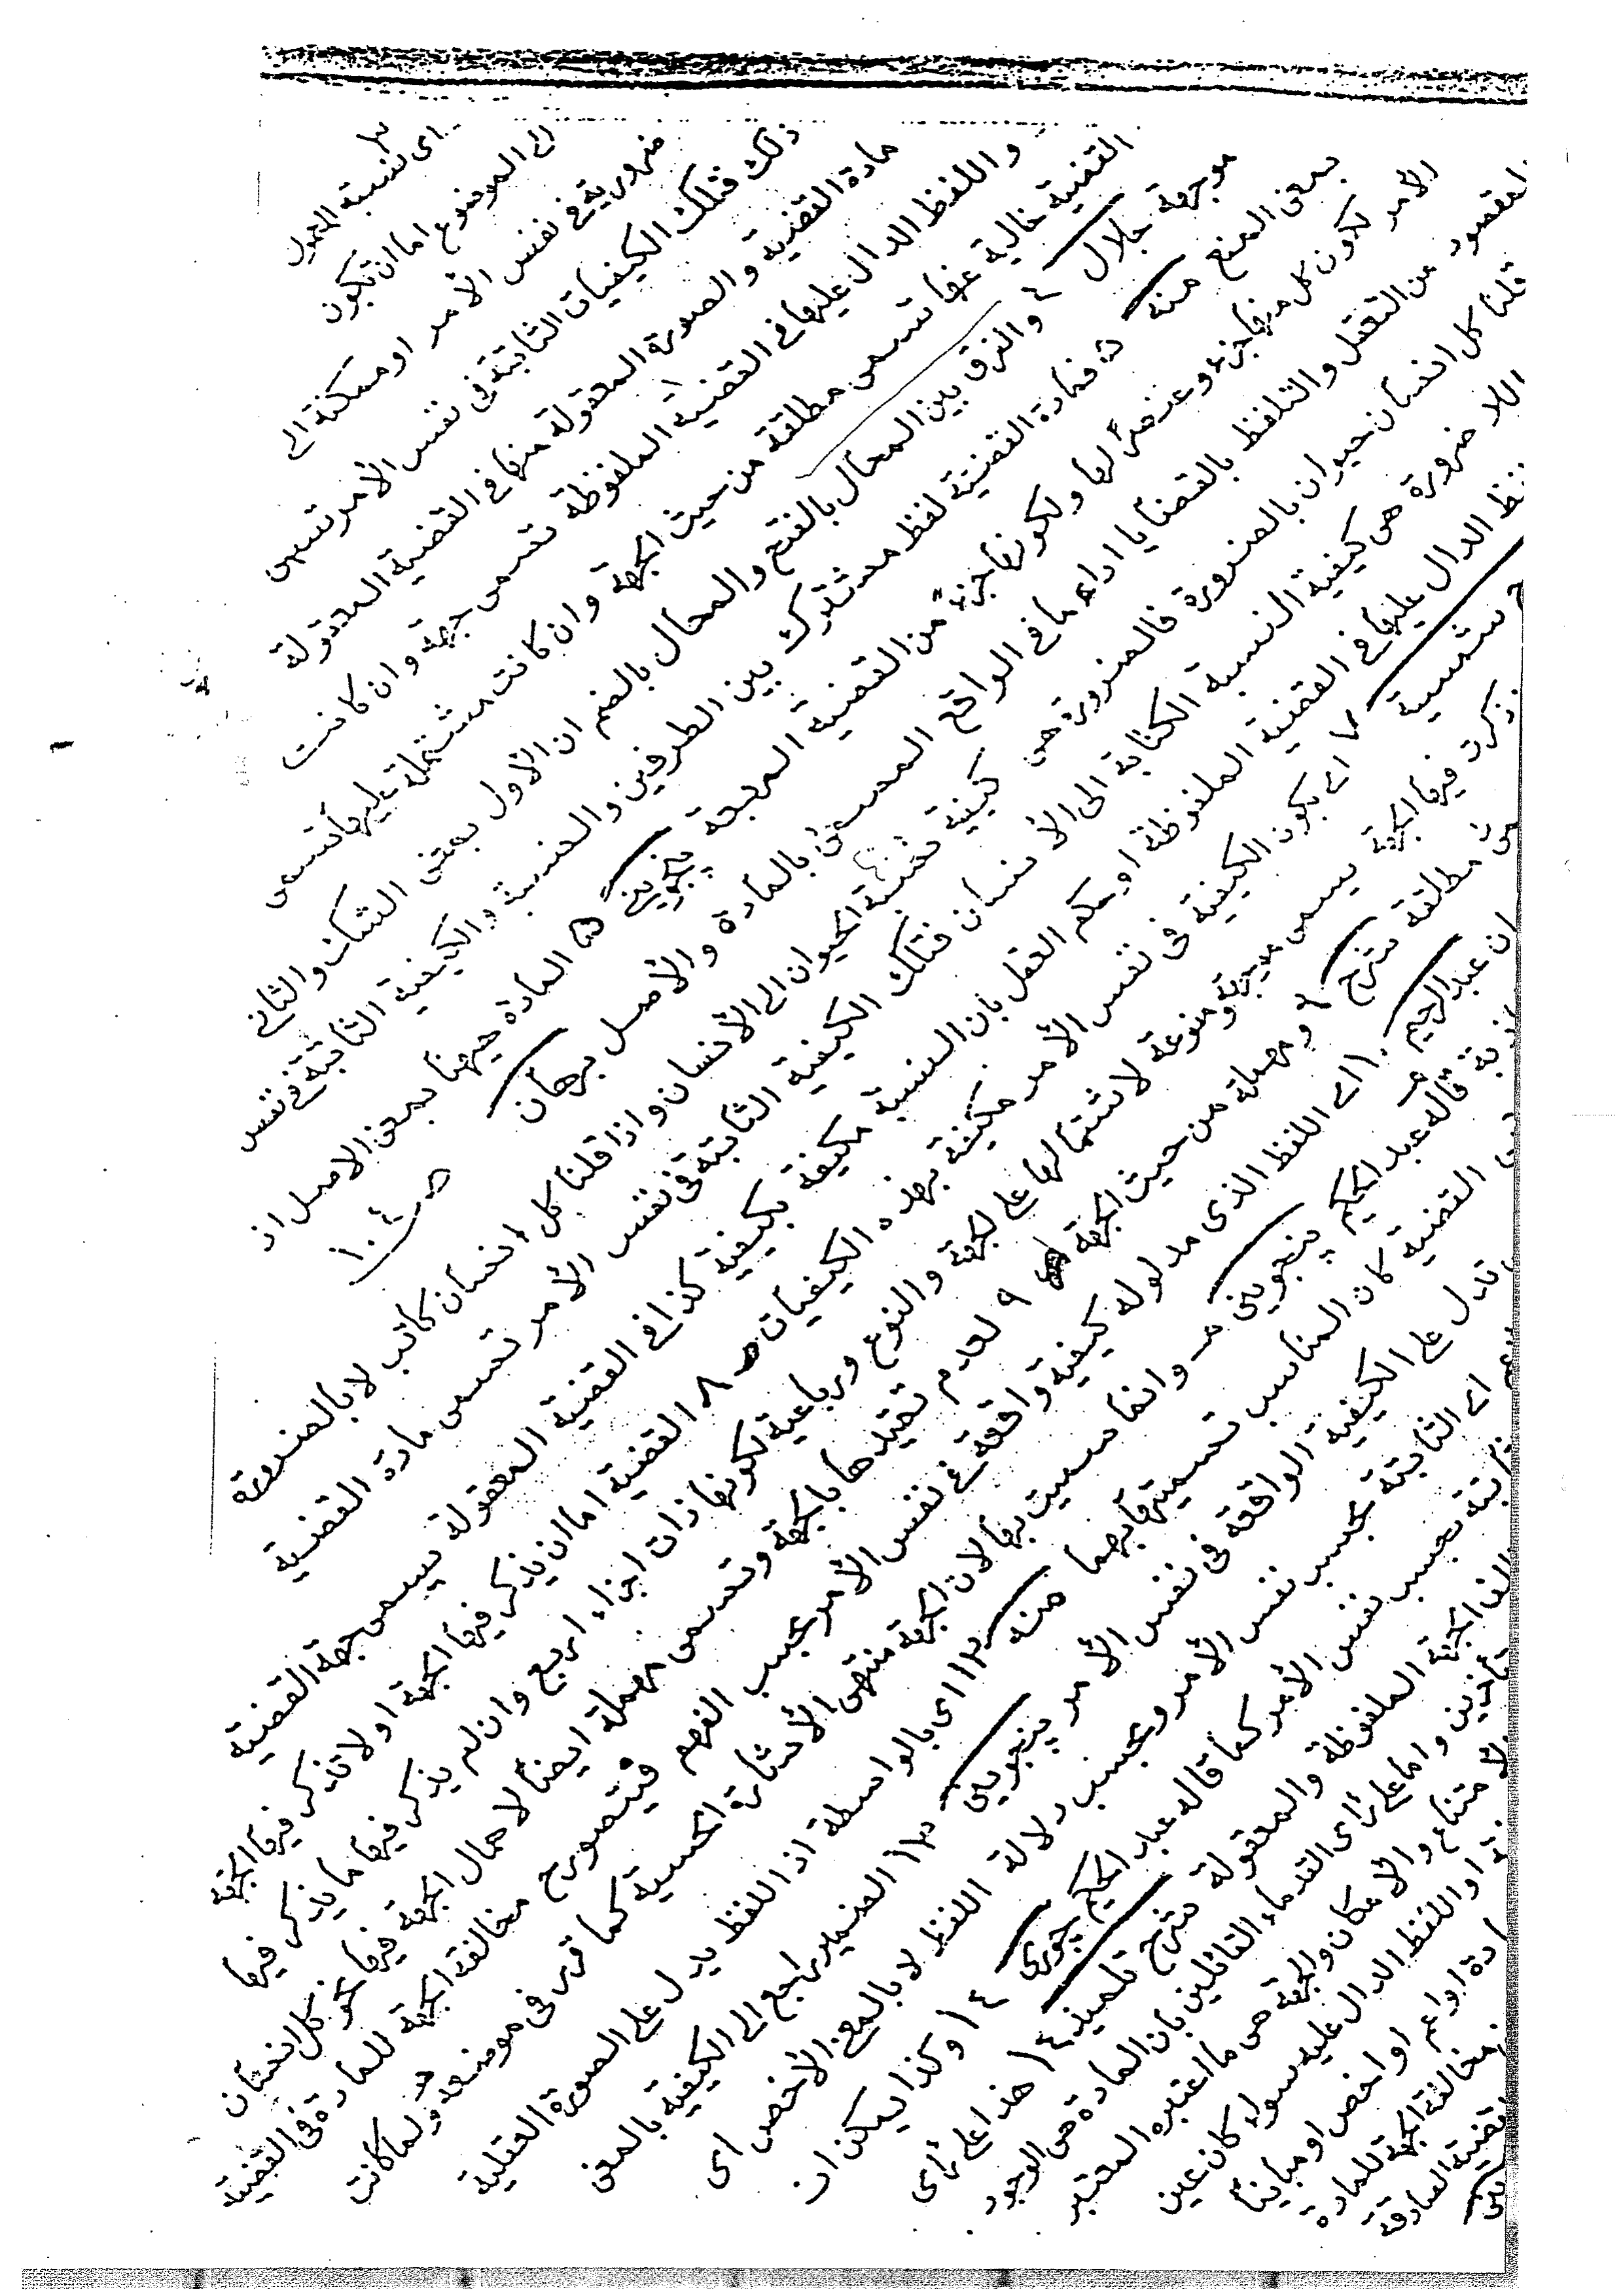 اى نسبة المحمول
الى الموضوع اما ان تكون
ضرورية فى نفس الأمر او ممكنة الى
ذلك فتلك الكيفيات الثابتة فى نفس الأمر تسمى
مادة القضية و الصورة المعقولة منها فى القضية المعقولة
و اللفظ الدال عليها فى القضية الملفوظة تسمى جهة و ان كانت
القضية خالية عنها تسمى مطلقة من حيث الجهة و ان كانت مشتملة عليها تسمى
موجهة جلال ٤ و الفرق بين المحال بالفتح و المحال بالضم ان الأول بمعنى الشك و الثانى
بمعنى المنع منه ٥ فمادة القضية لفظ مشترك بين الطرفين و النسبة و الكيفية الثابتة فى نفس
الأمر لكون كل منها جزء و عنصرًا لها و لكونها جزءً من القضية الموجهة پنجوينى ۵ المادة هيهنا بمعنى الاصل اذ
المقصود من التعقل و التلفظ بالقضايا اداء ما فى الواقع المسمى بالمادة و الأصل برهان ص ١٠٤
قلنا كل انسان حيوان بالضرورة فالضرورة هى كيفية نسبة الحيوان الى الأنسان و اذا قلنا كل انسان كاتب لا بالضرورة
اللا ضرورة هى كيفية النسبة الكتابة الى الأنسان فتلك الكيفية الثابتة فى نفس الأمر تسمى مادة القضية
الدال عليها فى القضية الملفوظة او حكم العقل بان النسبة مكيفة بكيفية كذا فى القضية المعقولة يسمى جهة القضية
شمسية ٧ اى بكون الكيفية فى نفس الأمر مكيفة بهذه الكيفيات ص ٨ القضية اما ان يذكر فيها الجهة او لا تذكر فيها الجهة
ذكرت فيها الجهة يسمى موجهة و منوعة لاشتمالها على الجهة و النوع و رباعية لكونها ذات اجزاء اربع و ان لم يذكر فيها ما يذكر فيها
مطلقة شرح ٩ و مهملة من حيث الجهة ٩ لعدم تقييدها بالجهة و تسمى مهملة ايضاً لاهمال الجهة فيها نحو كل انسان
ان عبد الرحيم ١٠ اى اللفظ الذى مدلوله كيفية واقعة فى نفس الأمر بحسب الفهم فيتصور ح مخالفة الجهة للمادة فى القضية
قاله عبد الحكيم پنجوينى مـ و انما سميت بها لان الجهة منتهى الأشارة الحسية كما قرر فى موضعه و لما كانت
القضية كان المناسب تسميتها بهما منه ١٢ اى بالواسطة اذ اللفظ يدل على الصورة العقلية
تدل على الكيفية الواقعة فى نفس الأمر پنجوينى ١٣ الضمير راجع الى الكيفية بالمعنى
اى الثابتة بحسب نفس الأمر و بحسب دلالة اللفظ لا بالمعنى الأخص اى
بحسب نفس الأمر كما قاله عبد الحكيم چورى ١٤ و كذا يمكن ان
الجهة الملفوظة و المعقولة شرح تلميذ ١٤ هذا على رأى
و اما على رأى القدماء القائلين بان المادة هى الوجوب
الأمتناع و الأمكان و الجهة هى ما اعتبره المعتبر
او اللفظ الدال عليه سواء كان عين
او اعم او اخص او مبايناً
مخالفة الجهة للمادة
القضية الصادقة